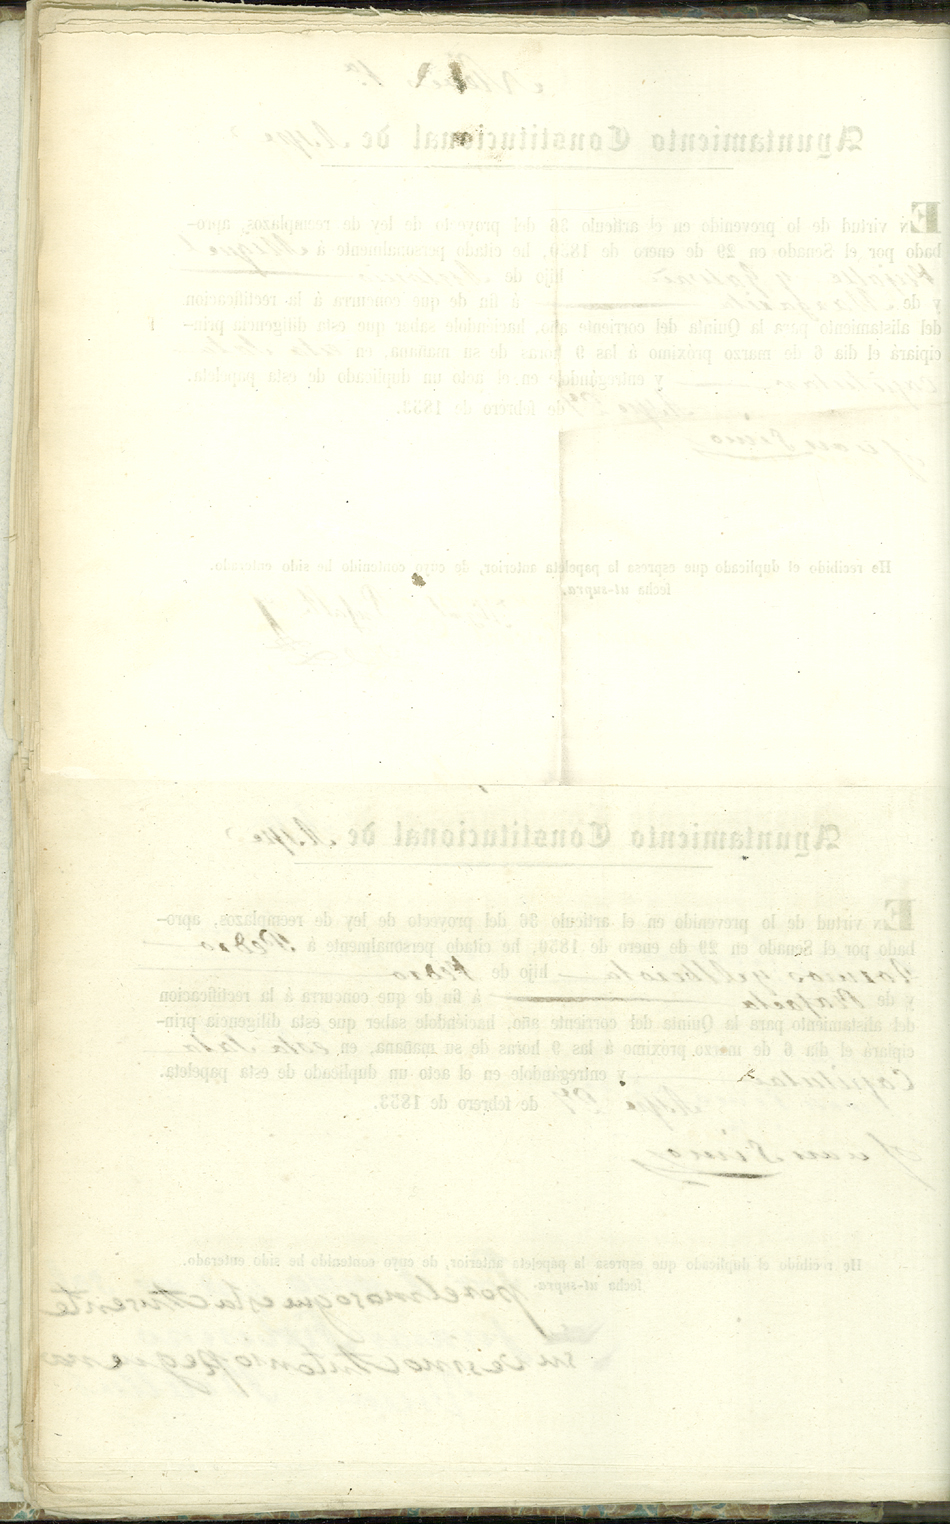 Ayuntamiento Constitucional de Aspe
EN virtud de lo prevenido en el artículo 36 del proyecto de ley de reemplazos, apro-
bado por el Senado en 29 de enero de 1850, he citado personalmente á Miguel
hijo de Antonio
y de Margarita á fin de que concurra á la rectificacion
del alistamiento para la Quinta del corriente año, haciéndole saber que esta diligencia prin-
cipiará el dia 6 de marzo próximo á las 9 horas de su mañana, en esta Sala
Capitular y entregándole en el acto un duplicado de esta papeleta.
Aspe 27 de febrero de 1853.
Juan Simo
He recibido el duplicado que espresa la papeleta anterior, de cuyo contenido he sido enterado,
fecha ut-supra.
Ayuntamiento Constitucional de Aspe
EN virtud de lo prevenido en el artículo 36 del proyecto de ley de reemplazos, apro-
bado por el Senado en 29 de enero de 1850, he citado personalmente á Pedro
hijo de Pedro
y de Rafaela á fin de que concurra á la rectificacion
del alistamiento para la Quinta del corriente año, haciéndole saber que esta diligencia prin-
cipiará el dia 6 de marzo próximo á las 9 horas de su mañana, en esta Sala
Capitular y entregándole en el acto un duplicado de esta papeleta.
Aspe 27 de febrero de 1853.
Juan Simo
He recibido el duplicado que espresa la papeleta anterior, de cuyo contenido he sido enterado.
fecha ut-supra.
por el moso que esta Ausente
su vesino Antonio